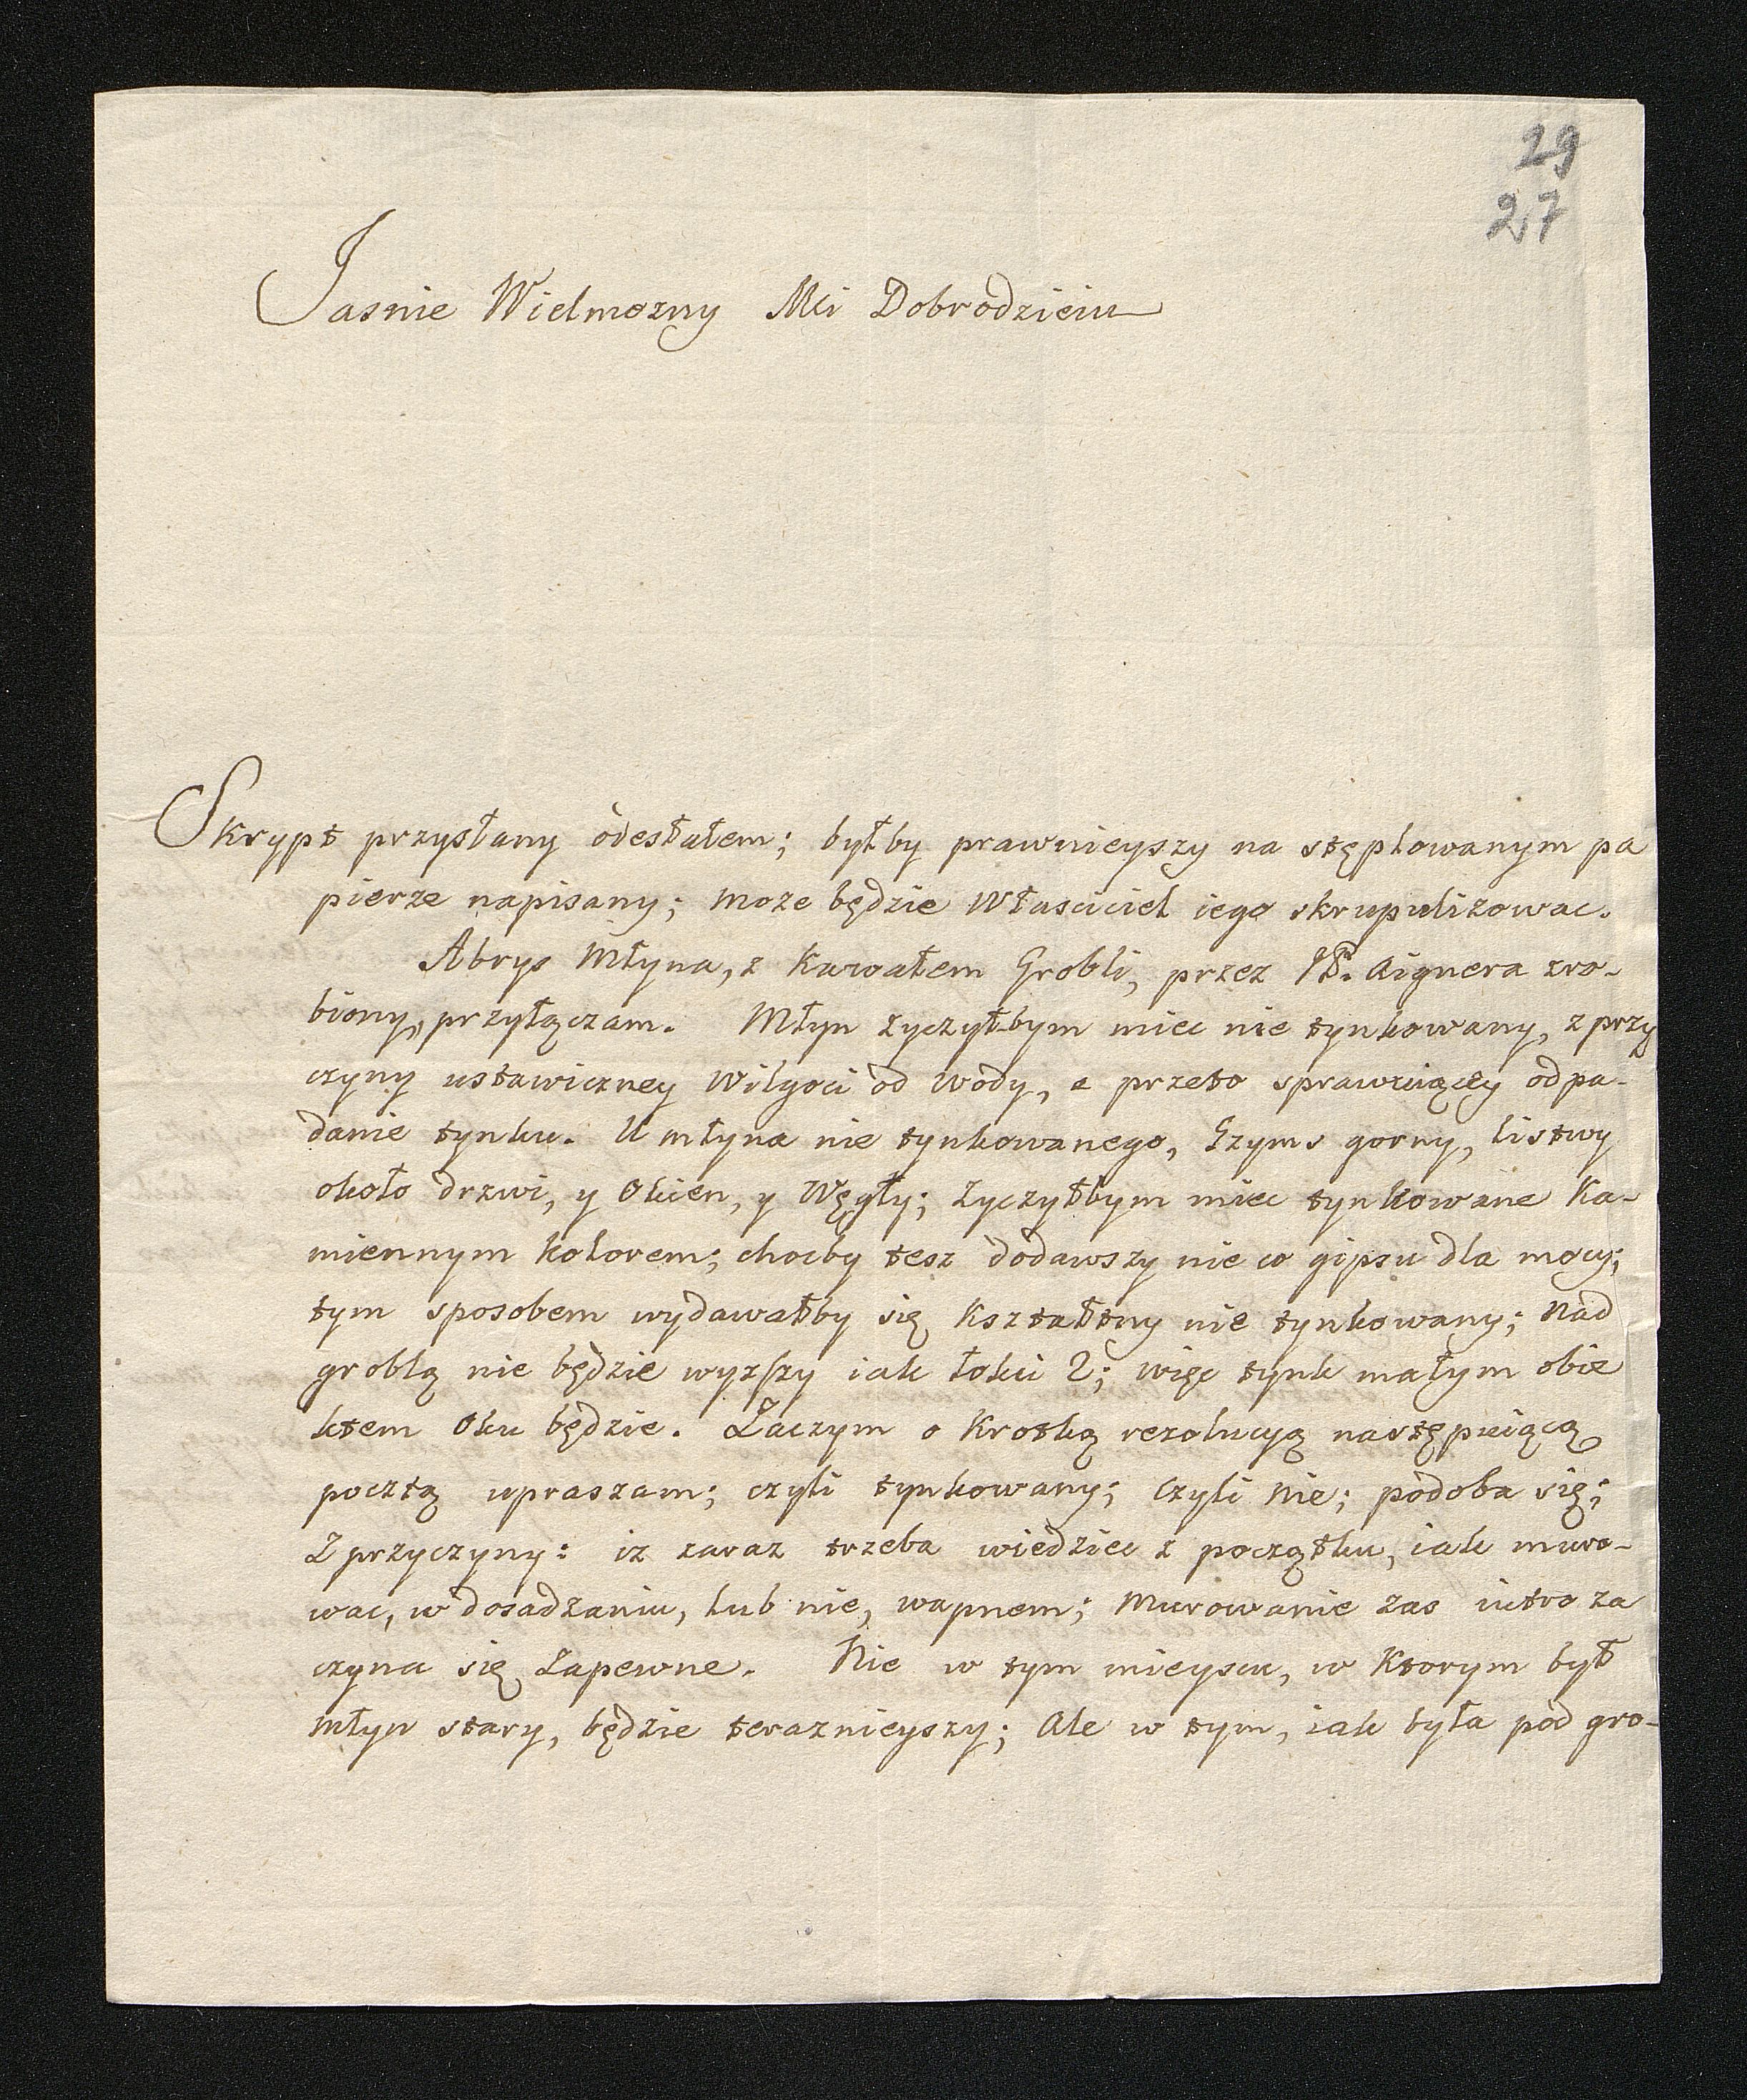 29
27
Jasnie Wielmozny Mci Dobrodzieiu
Skrypt przysłany odesłałem; byłby prawnieyszy na stęplowanym pa
pierze napisany; moze będzie Własciciel iego skrupulizowac.
Abrys Młyna, z Kawałem Grobli, przez JP. Aignera zro-
biony, przyłączam. Młyn zyczył-bym miec nie tynkowany, z przy
czyny ustawiczney Wilgoci od wody, a przeto sprawuiącey odpa-
danie tynku. U młyna nie tynkowanego, Gzyms gorny, listwy
około drzwi, y Okien, y Węgły; zyczyłbym miec tynkowane Ka-
miennym kolorem; chocby tesz dodawszy nie co gipsu dla mocy;
tym sposobem wydawałby się Kształtny nie tynkowany; Nad
groblą nie będzie wyzszy iak łokci 2; więc tynk małym obie
ktem Oku będzie. Zaczym o Krotką rezolucyą następuiącą
pocztą upraszam; czyli tynkowany; czyli nie; podoba się;
Z przyczyny: iz zaraz trzeba wiedziec z początku, iak muro-
wac, w dosadzaniu, lub nie, wapnem; Murowanie zas iutro za
czyna się Zapewne. Nie w tym mieyscu, w Ktorym był
młyn stary, będzie teraznieyszy; Ale w tym, iak była pod gro-